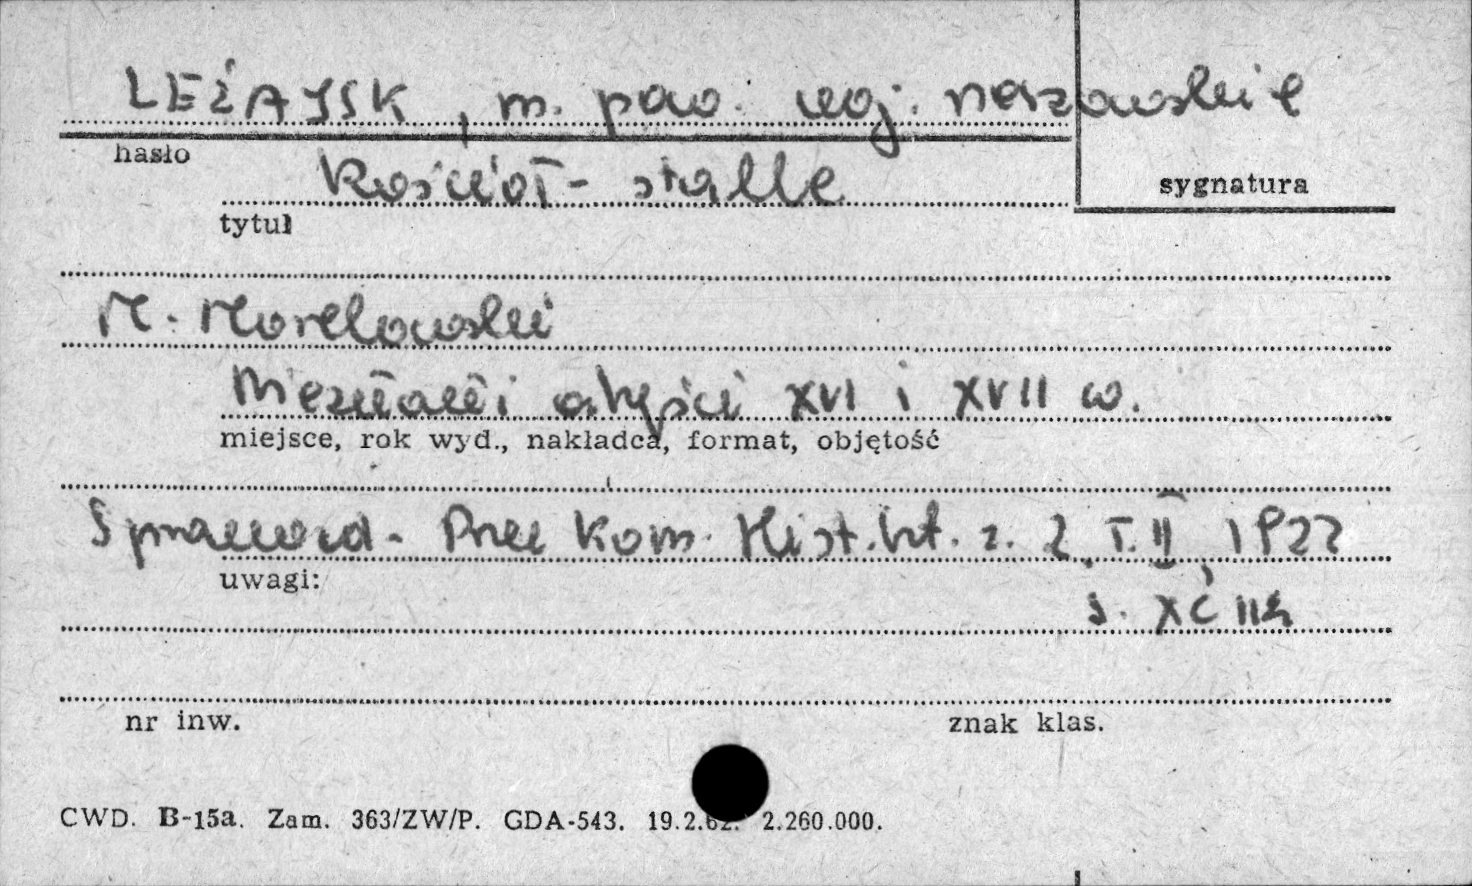 LEŻAJSK, m. pow. woj. rzeszowskie
hasło
Kościół - stalle
sygnatura
tytuł
M. Morelowski
i XVI i XVII w.
miejsce, rok wyd., nakładca, format, objętość
Sprawozd. Prac Kom. Hist. Szt. z. 2 T. II, 1922
uwagi:
s. XC
nr inw.
znak klas.
CWD. B-15a. Zam. 363/ZW/P. GDA-543. 19.2.62. 2.260.000.